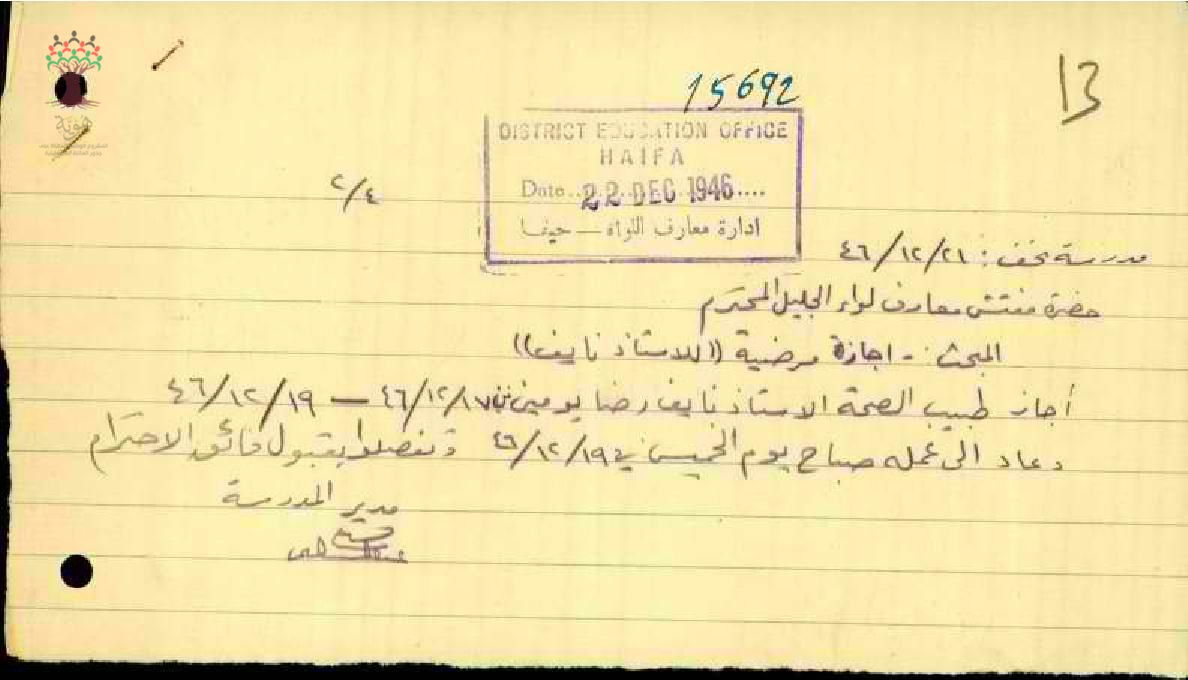 13
15692
DISTRICT EDUCATION OFFICE
HAIFA
Date .. 22 DEC 1946 ....
ادارة معارف اللواء — حيفا
٢/٤
مدرسة نحف: ٤٦/١٢/٢١
حضرة مفتش معارف لواء الجليل المحترم
المبحث :- اجازة مرضية ((للاستاذ نايف))
أجاز طبيب الصحة الاستاذ نايف رضا يومين من ٤٦/١٢/١٧ — ٤٦/١٢/١٩
وعاد الى عمله صباح يوم الخميس في ٤٦/١٢/١٩ وتفضلوا بقبول فائق الاحترام
مدير المدرسة